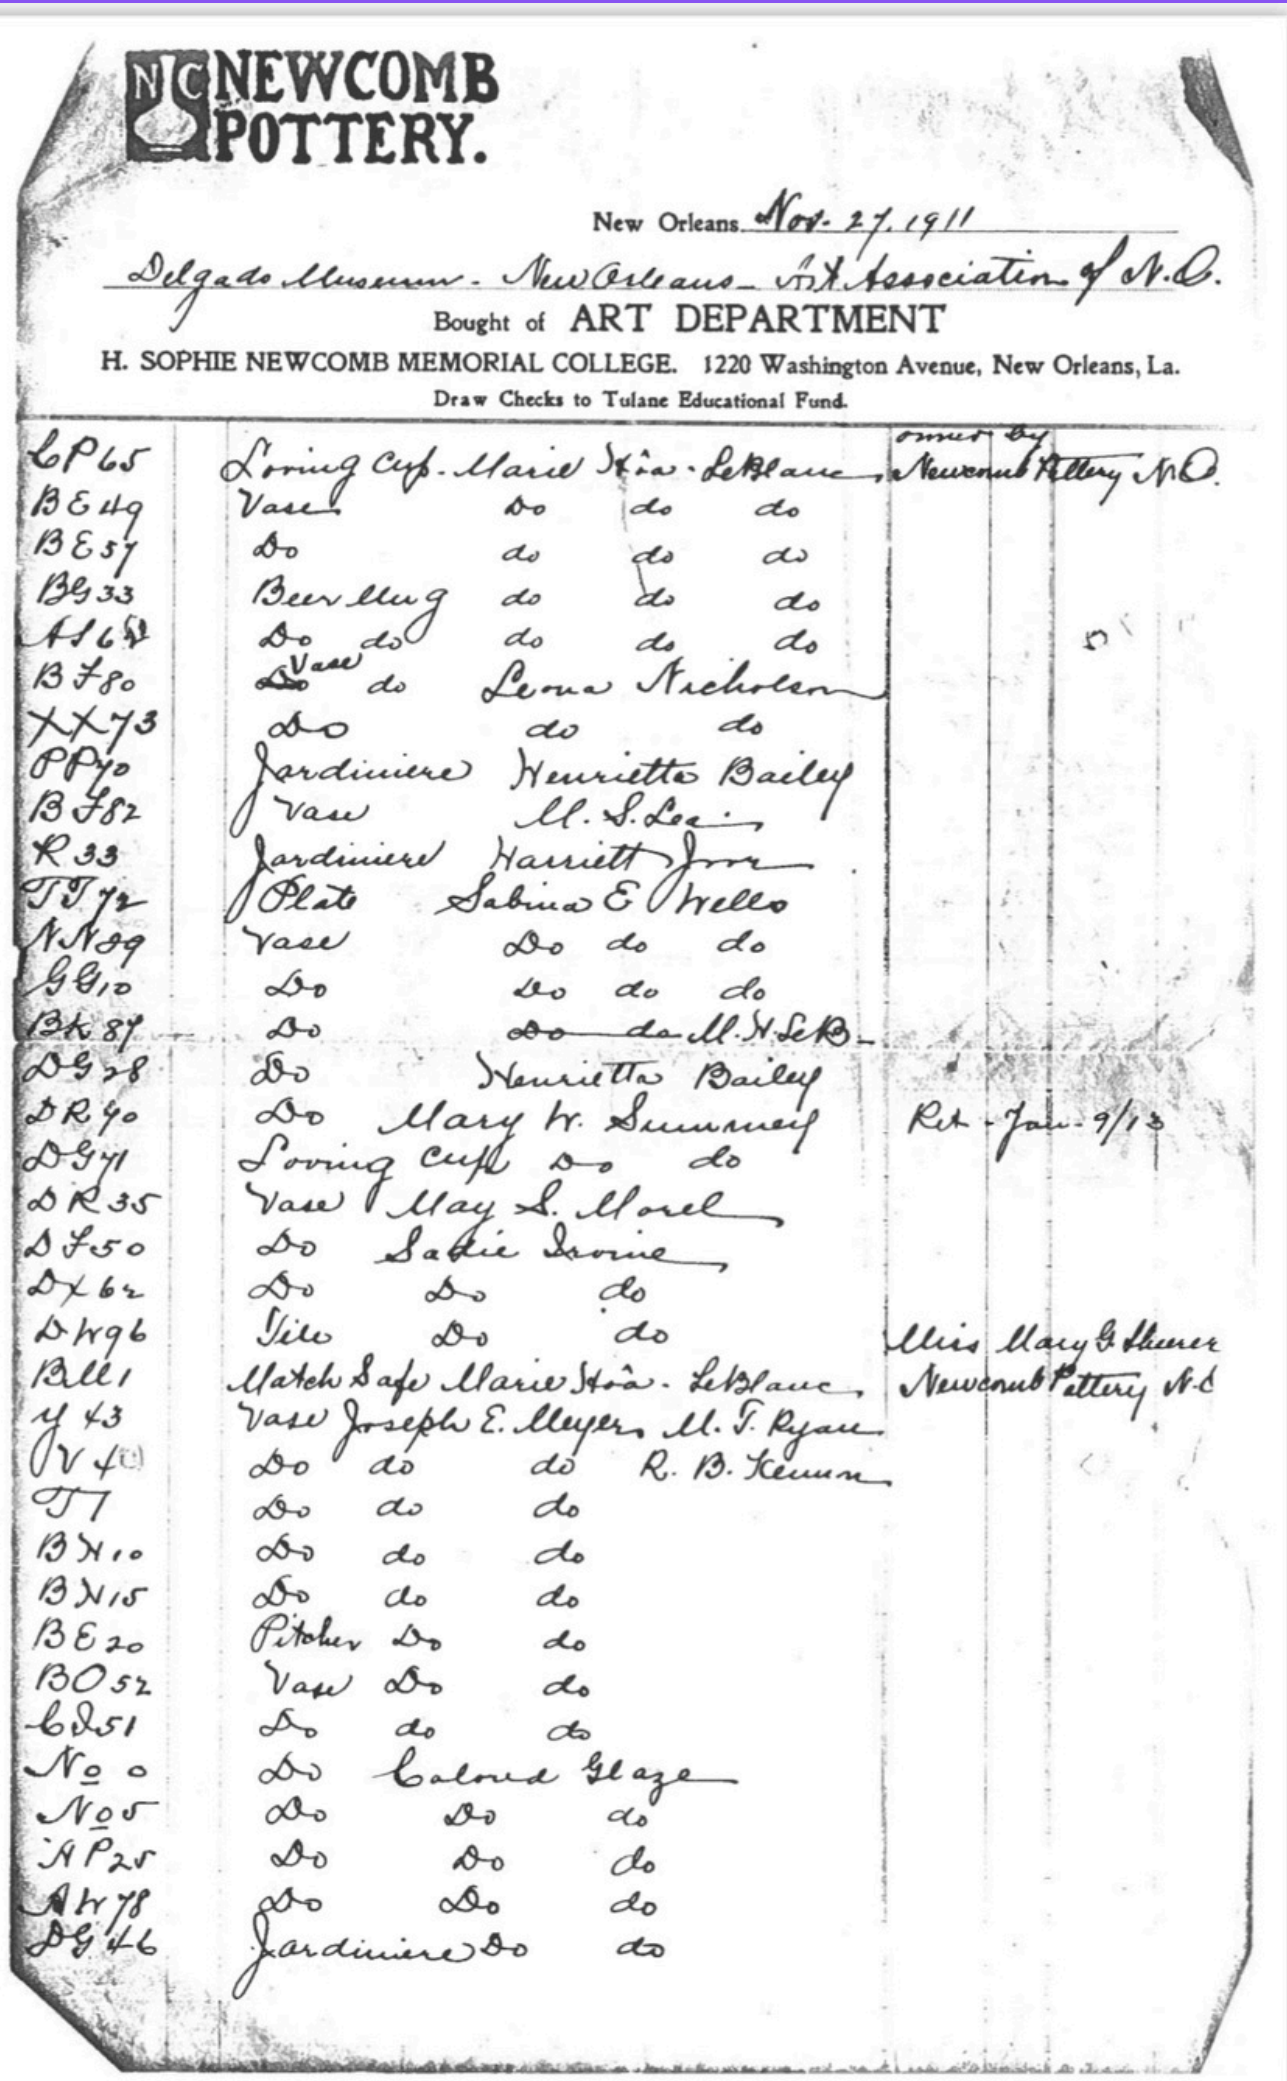 NC NEWCOMB
POTTERY.
New Orleans Nov. 27. 1911
Delgado Museum - New Orleans - Art Association of N.O.
Bought of ART DEPARTMENT
H. SOPHIE NEWCOMB MEMORIAL COLLEGE. 1220 Washington Avenue, New Orleans, La.
Draw Checks to Tulane Educational Fund.
owned by
CP65 Loving Cup. Marie Hôa - LeBlanc, Newcomb Pottery N.O.
BE49 Vase Do do do
BE57 Do do do do
BG33 Beer Mug do do do
Do do do do do
BF80 Vase do Leona Nicholson
XX73 Do do do
PP70 Jardiniere Henrietta Bailey
BF82 Vase M. S. Lea
R33 Jardiniere Harriett Joor
TT72 Plate Sabina E Wells
NN89 Vase Do do do
GG10 Do Do do do
BK87 Do Do do M. H. LeB-
DG28 Do Henrietta Bailey
DR70 Do Mary W. Summey Ret - Jan - 9/13
DG71 Loving Cup Do do
DR35 Vase May S. Morel
DF50 Do Sadie Irvine
DX62 Do Do do
DW96 Tile Do do Miss Mary G. Sheerer
BM1 Match Safe Marie Hôa - LeBlanc, Newcomb Pottery N.O
Y43 Vase Joseph E. Meyer, M. T. Ryan
Do do do R. B. Kennon
TT Do do do
BH10 Do do do
BH15 Do do do
BE20 Pitcher Do do
BO52 Vase Do do
Do do do
No 0 Do Colored Glaze
No 5 Do Do do
AP25 Do Do do
AW78 Do Do do
DG46 Jardiniere Do do